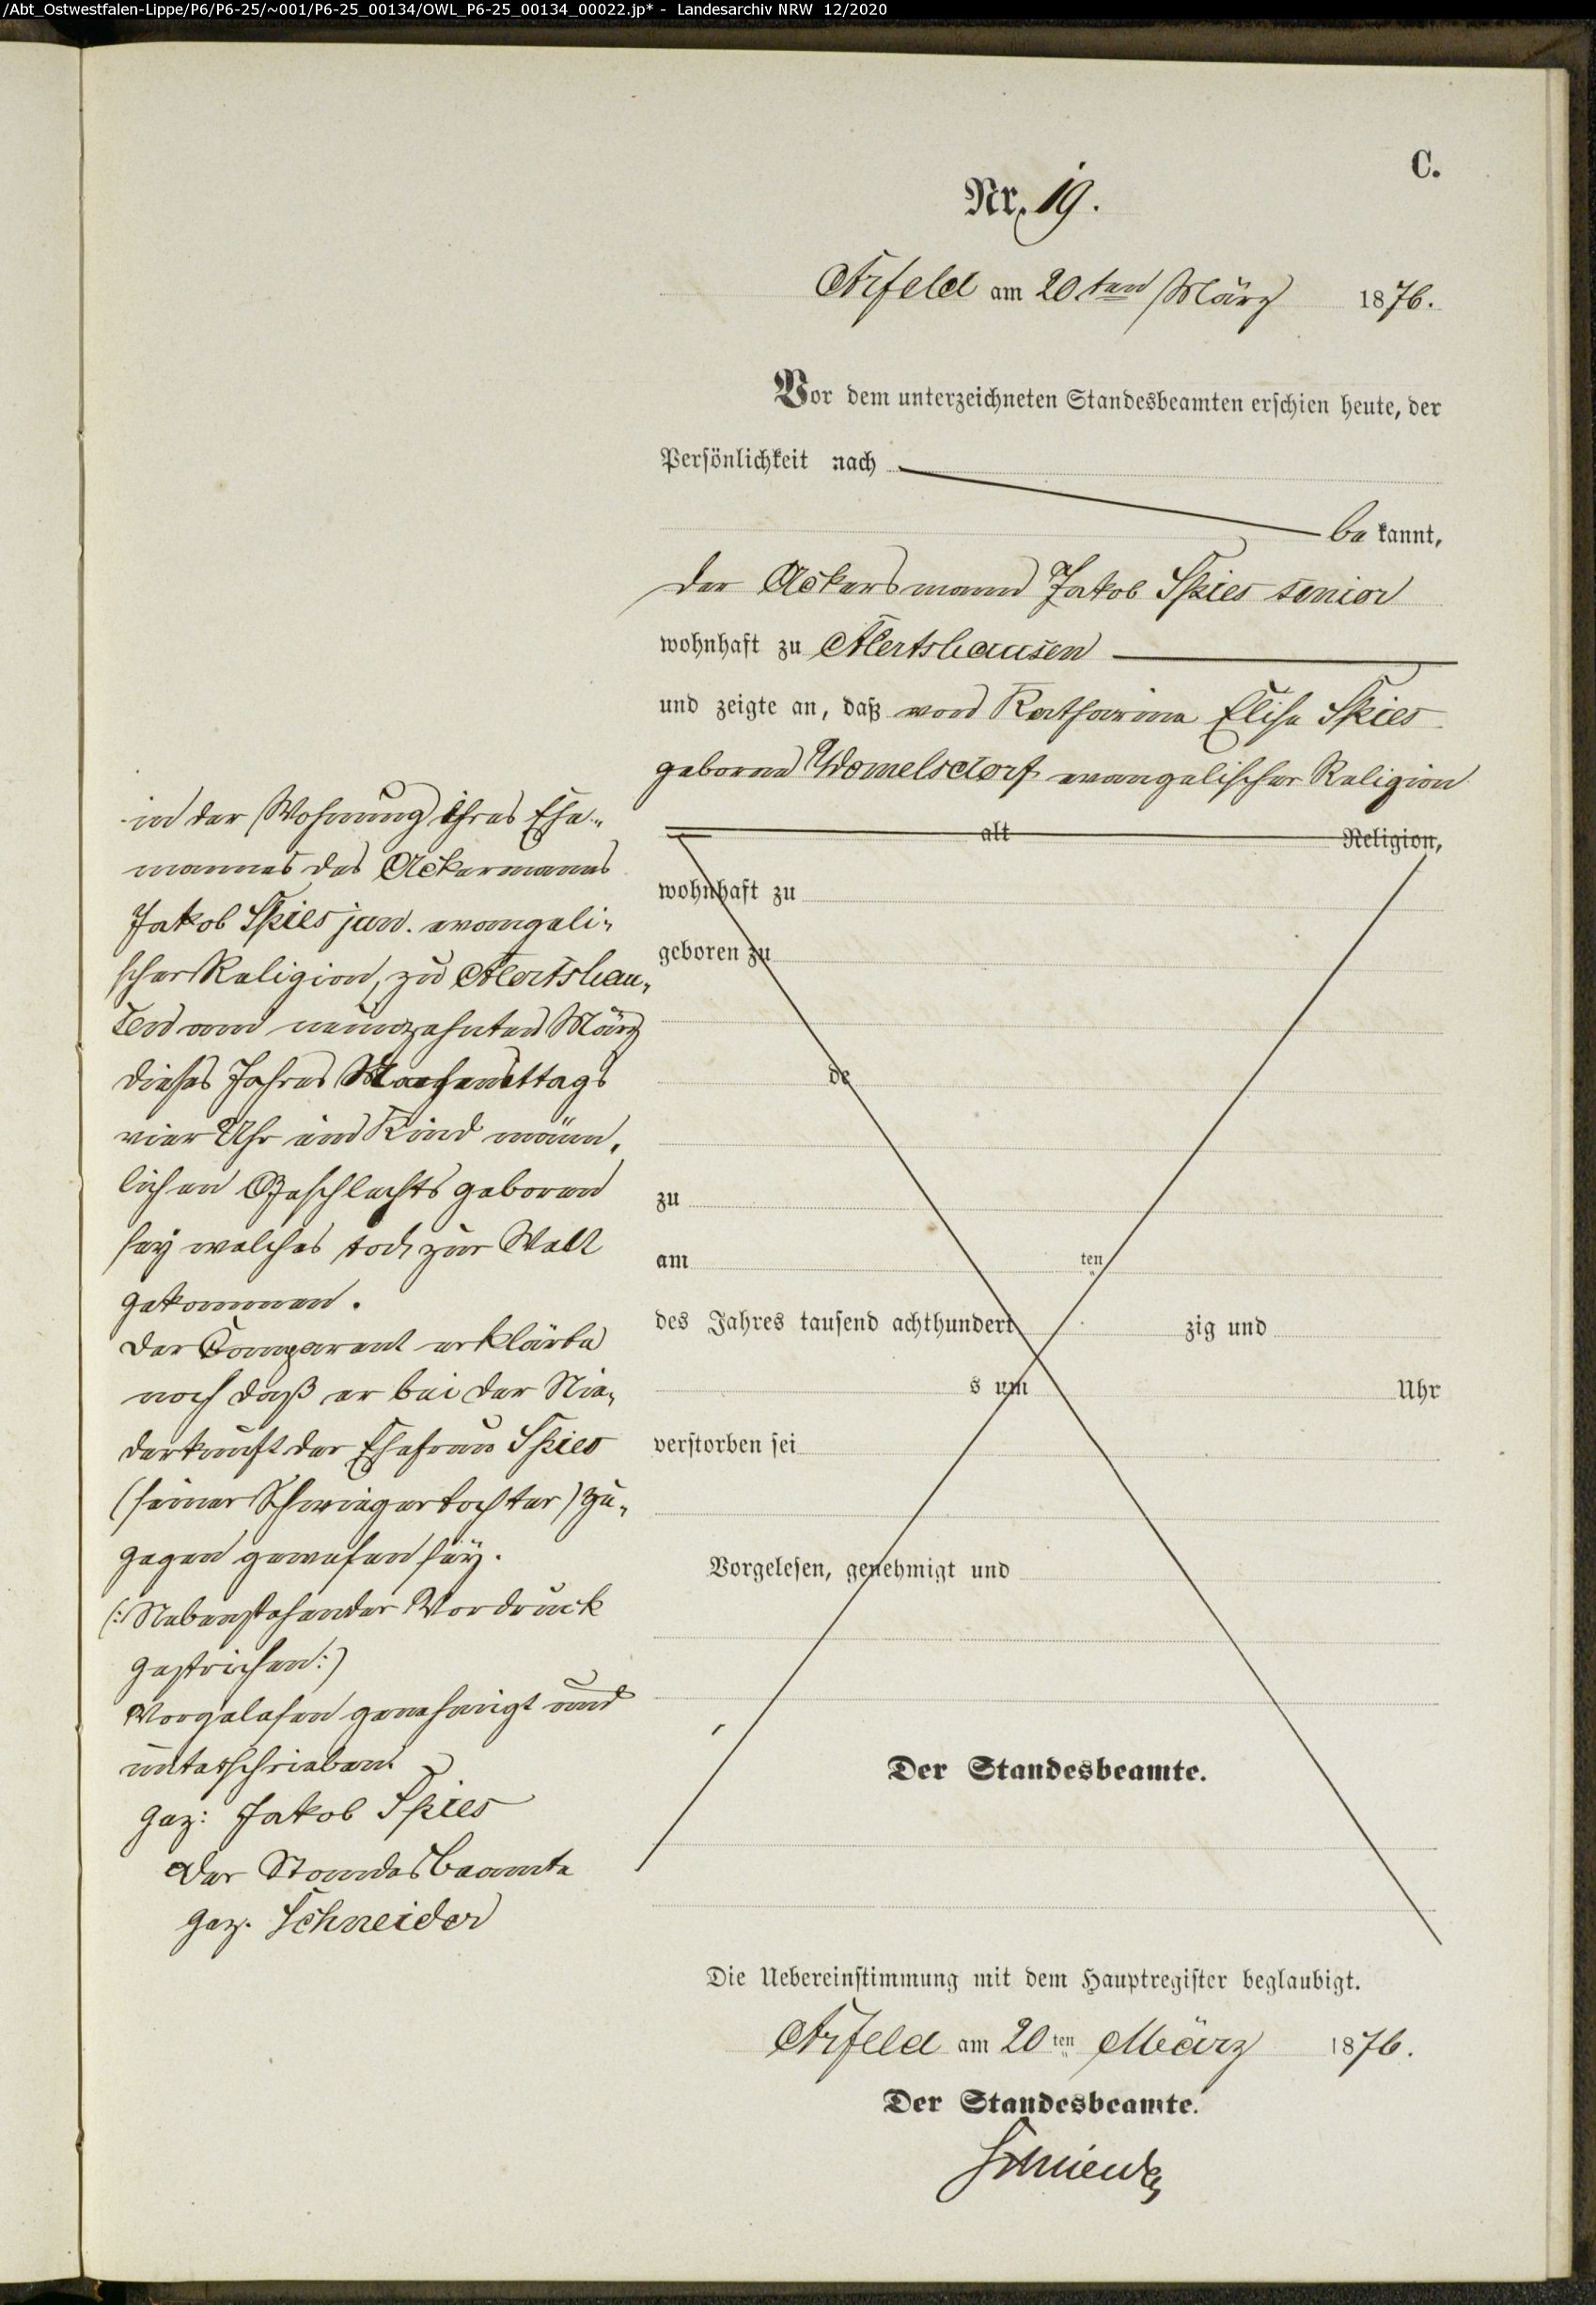 /Abt_Ostwestfalen-Lippe/P6/P6-25/~001/P6-25_00134/OWL_P6-25_00134_00022.jp* - Landesarchiv NRW 12/2020
C.
Nr. 19.
Arfeld am 20ten März 1876.
Vor dem unterzeichneten Standesbeamten erschien heute, der
Persönlichkeit nach
be kannt,
der Ackersmann Jakob Spies senior
wohnhaft zu Alertshausen
und zeigte an, daß von Katharina Elise Spies
geborne Womelsdorf evangelischer Religion
alt Religion,
wohnhaft zu
geboren zu
de
zu
am ten
des Jahres tausend achthundert zig und
s um Uhr
verstorben sei
Vorgelesen, genehmigt und
Der Standesbeamte.
in der Wohnung ihres Ehe-
mannes des Ackermanns
Jakob Spies jun. evangeli-
scher Religion, zu Alertshau-
sen am neunzehnten März
dieses Jahres Nachmittags
vier Uhr ein Kind männ-
lichen Geschlechts geboren
sey welches todt zur Welt
gekommen.
Der Comparent erklärte
noch daß er bei der Nie-
derkunft der Ehefrau Spies
(seiner Schwiegertochter) zu-
gegen gewesen sey.
(: Nebenstehender Vordruck
gestrichen :)
Vorgelesen genehmigt und
unterschrieben
gez: Jakob Spies
Der Standesbeamte
gez. Schneider
Die Uebereinstimmung mit dem Hauptregister beglaubigt.
Arfeld am 20ten März 1876.
Der Standesbeamte.
Schneider